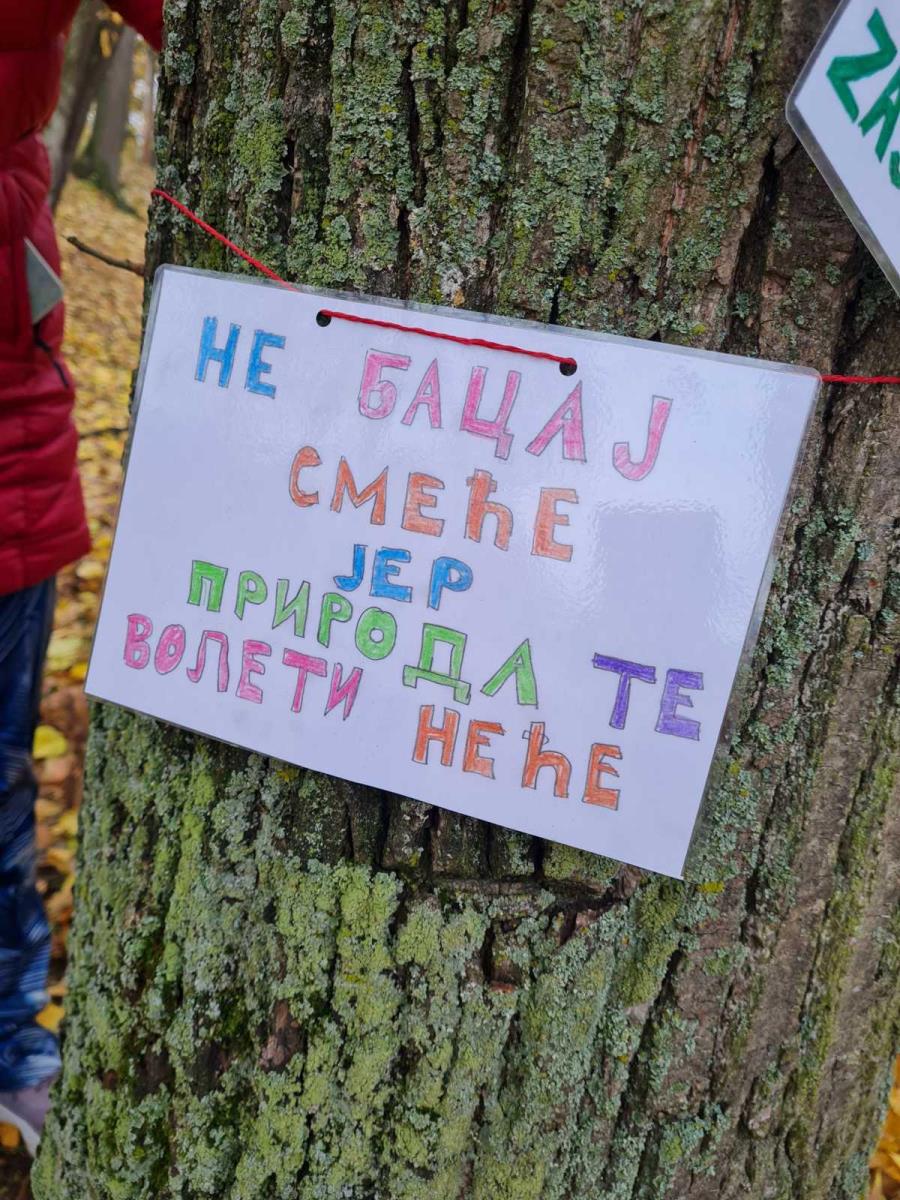 НЕ БАЦАЈ
СМЕЋЕ
ЈЕР
ПРИРОДА ТЕ
ВОЛЕТИ НЕЋЕ